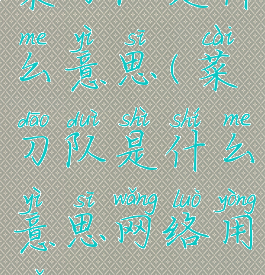 me yì sī cài
么意思(菜
dāo duì shì shí me
刀队是什么
yì sī wǎng luò yòng
意思网络用